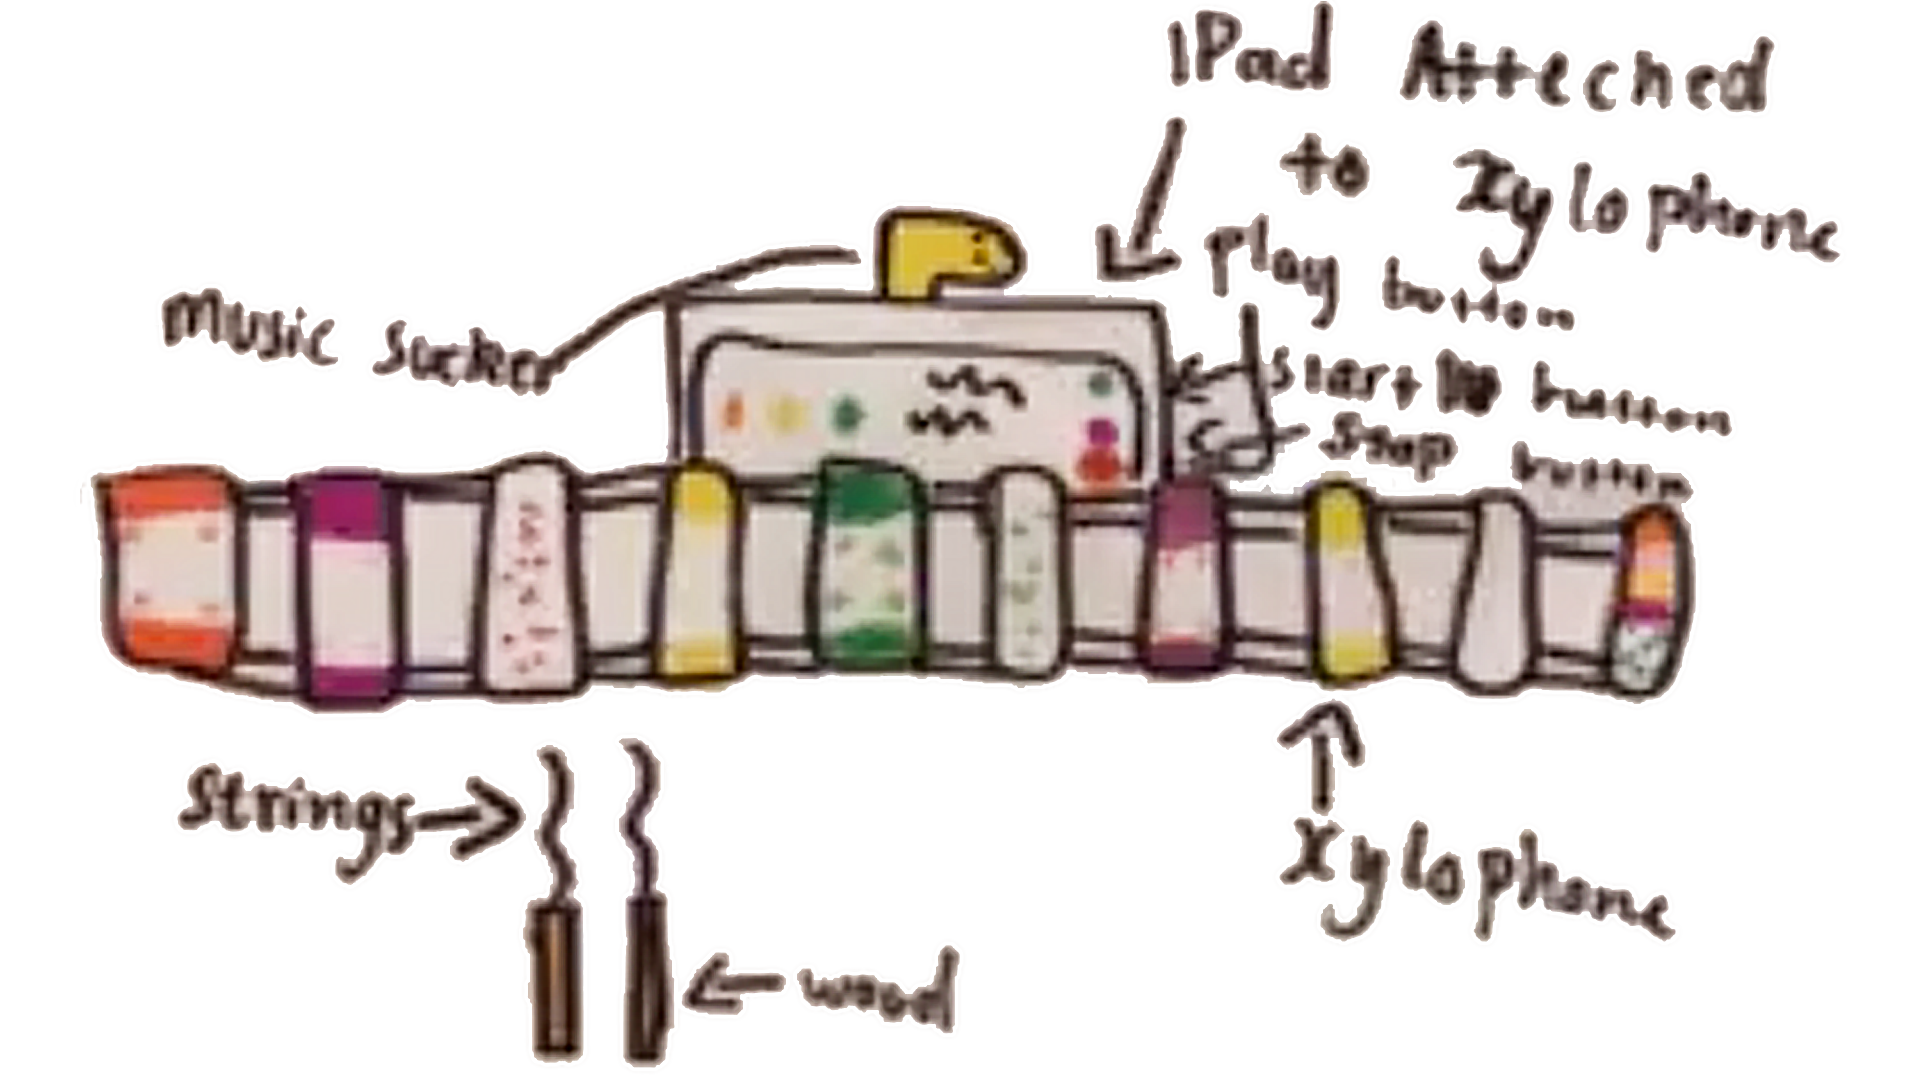 IPad Atteched
to xylophone
play button
start button
stop button
Music Sucker
strings
wood
xylophone